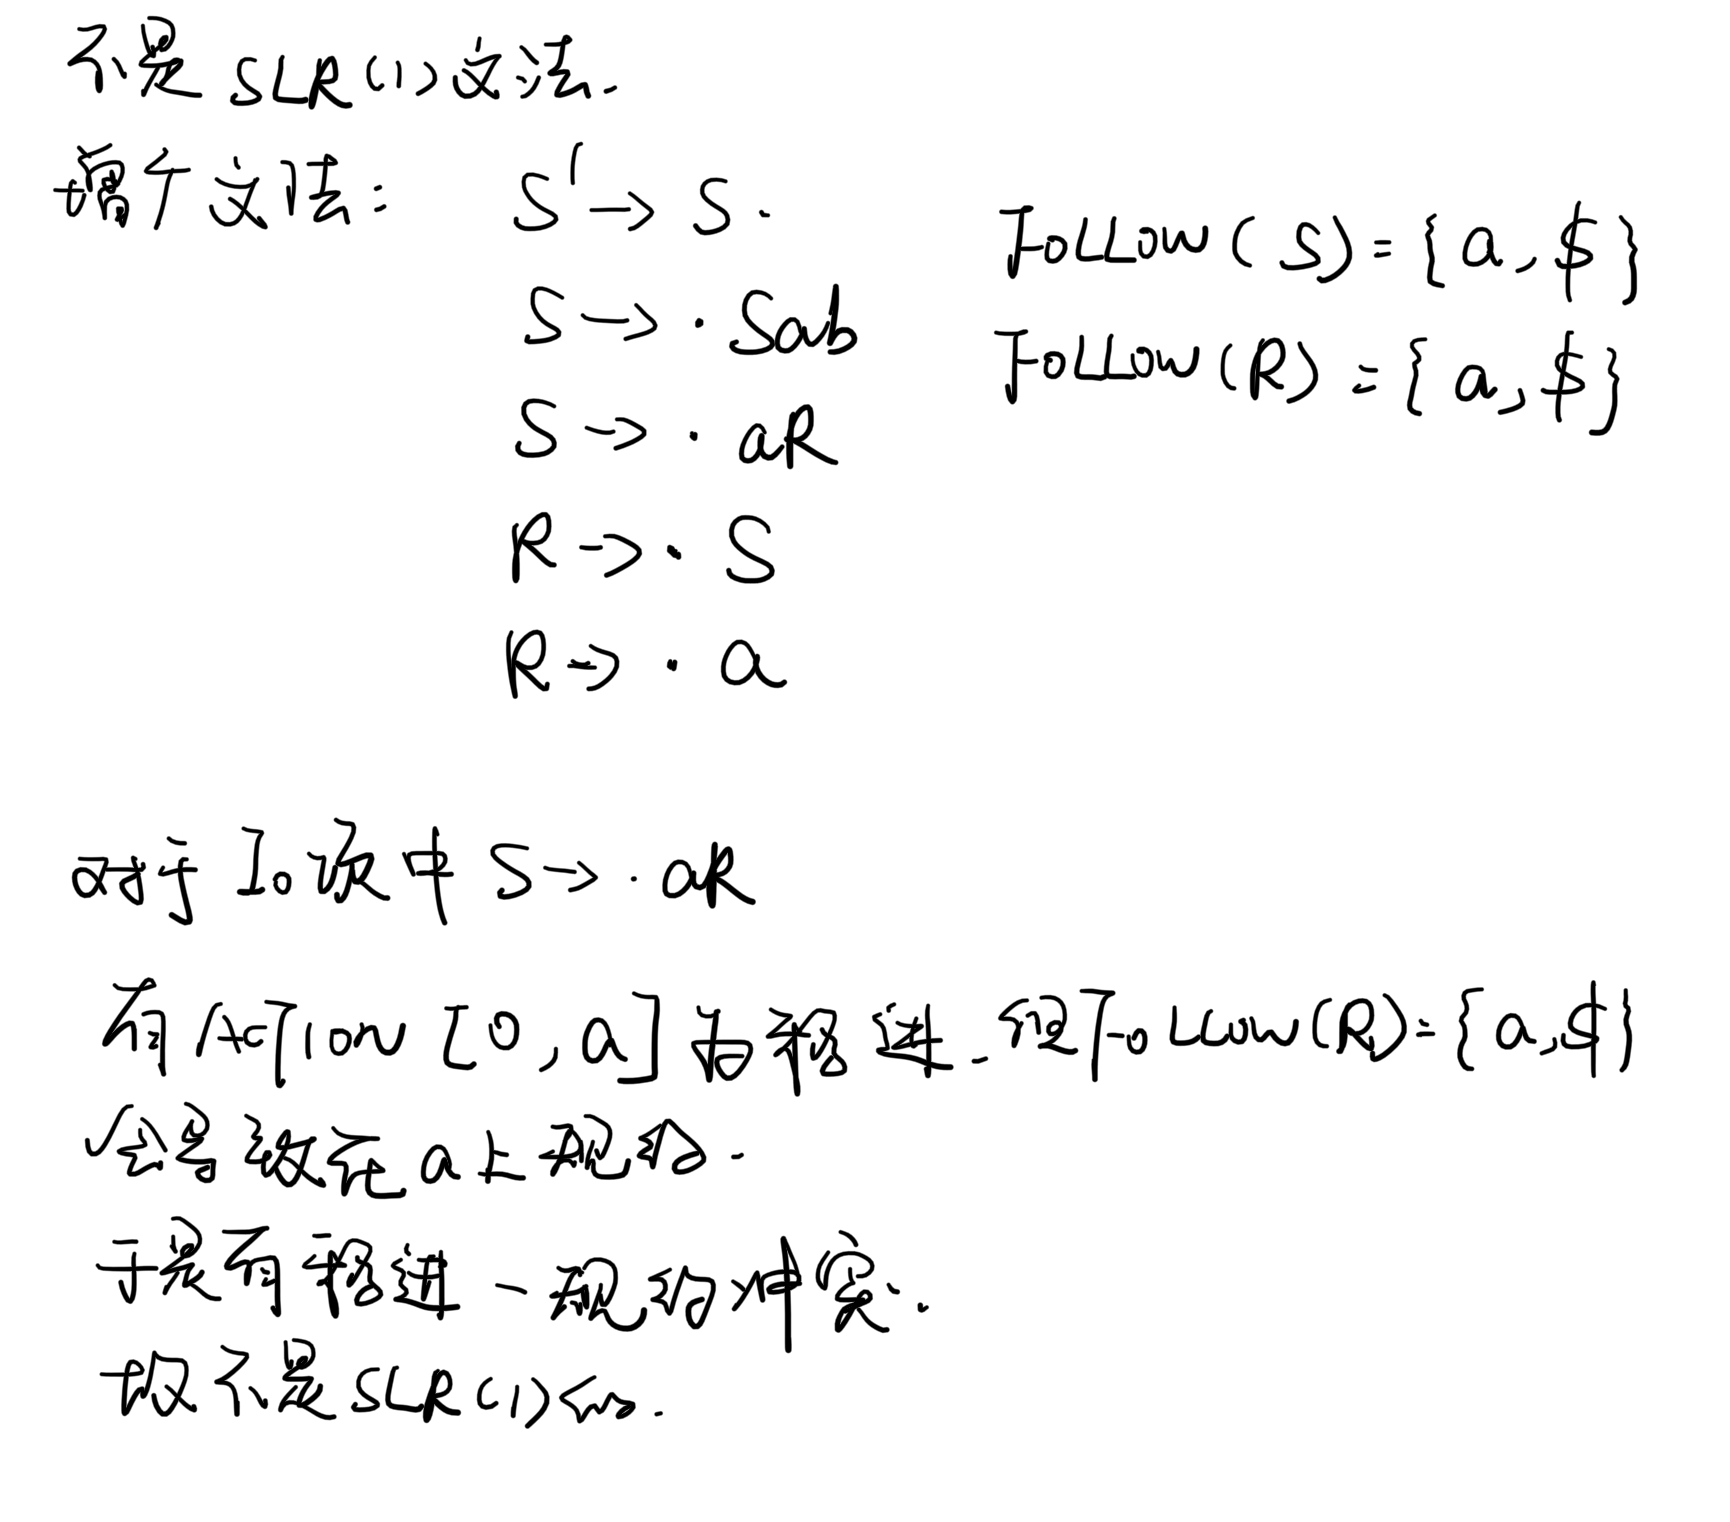 不是 SLR(1) 文法.
增广文法: S' → S.
S → · Sab
S → · aR
R → · S
R → · a
FOLLOW(S) = {a, $}
FOLLOW(R) = {a, $}
对于 I₀ 项中 S → · aR
有 ACTION [0, a] 为移进. 但 FOLLOW(R) = {a, $}
会导致在 a 上规约.
于是有移进 - 规约冲突.
故不是 SLR(1)的.